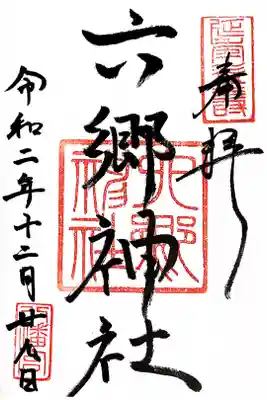 奉拝
六郷神社
令和二年十二月廿八日
六郷神社